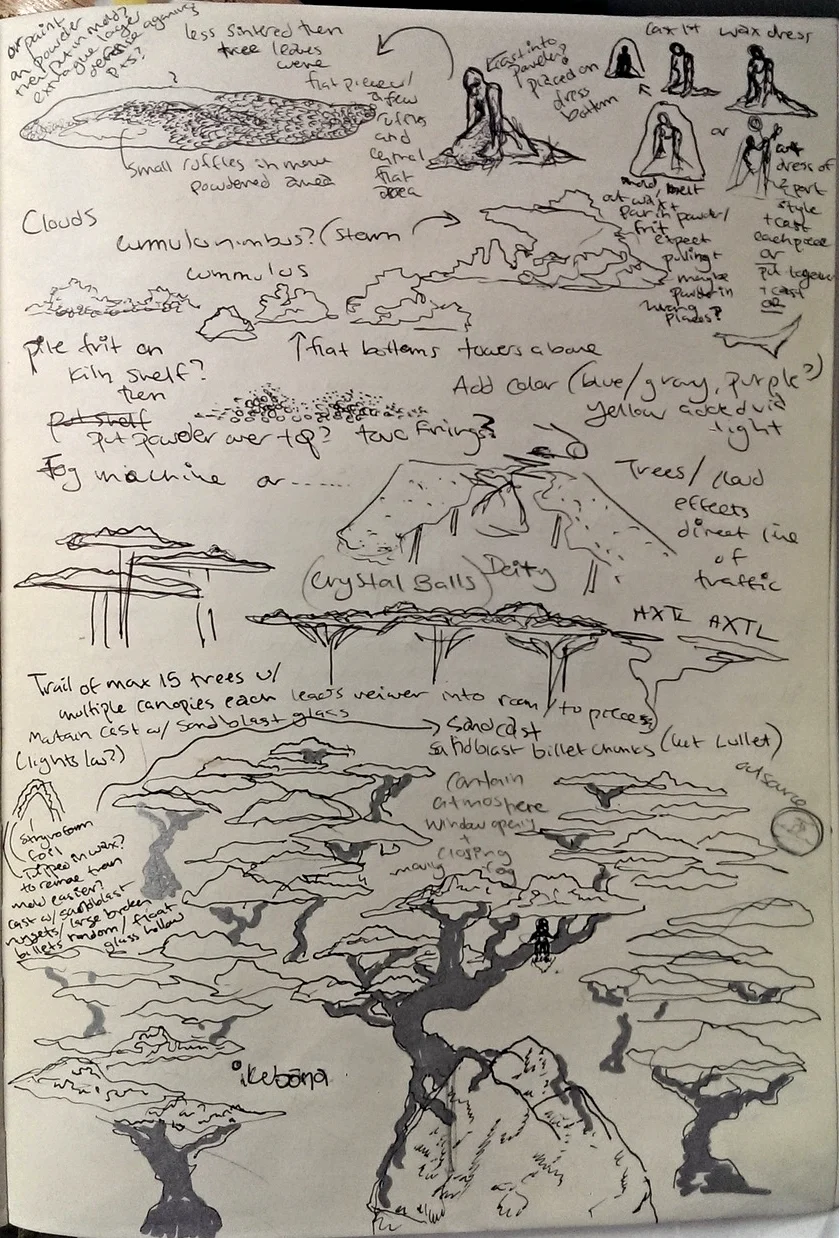 or paint
on powder
then put in mold?
extra glue layer
defense against
pits?
less sintered then
tree leaves
were
flat pieces w/
a few
ruffles
and
central
flat
area
?
small ruffles in more
powdered area
cast into
paneling?
placed on
dress
bottom
cast
wax dress
or
mold, melt
out wax +
pour in powder/
frit
expect
pitting +
maybe
powder in
wrong
places?
dress of
2 part
style
+ cast
each piece
or
put together
+ cast
or
Clouds
cummulonimbus? (storm
cummulus
↑ flat bottoms towers above
pile frit on
kiln shelf?
then
put shelf
put powder over top? two firings?
Add color (blue/gray, purple?)
yellow added via
light
Fog machine or ......
Trees/cloud
effects
direct line
of
traffic
(Crystal Balls)
Deity
AXTL AXTL
Trail of max 15 trees w/
multiple canopies each leads veiwer into room/to pieces
Matain cast w/ sandblast glass
→ sandcast
sandblast billet chunks (cut cullet)
(lights low?)
outsource
contain
atmoshere
window opening
+
closing
many fog
(styrofoam
foil
Dipped in wax?
to remove from
mold easier?
cast w/ sandblast
nuggets/large broken
billets random/float
glass hollow
ikebana